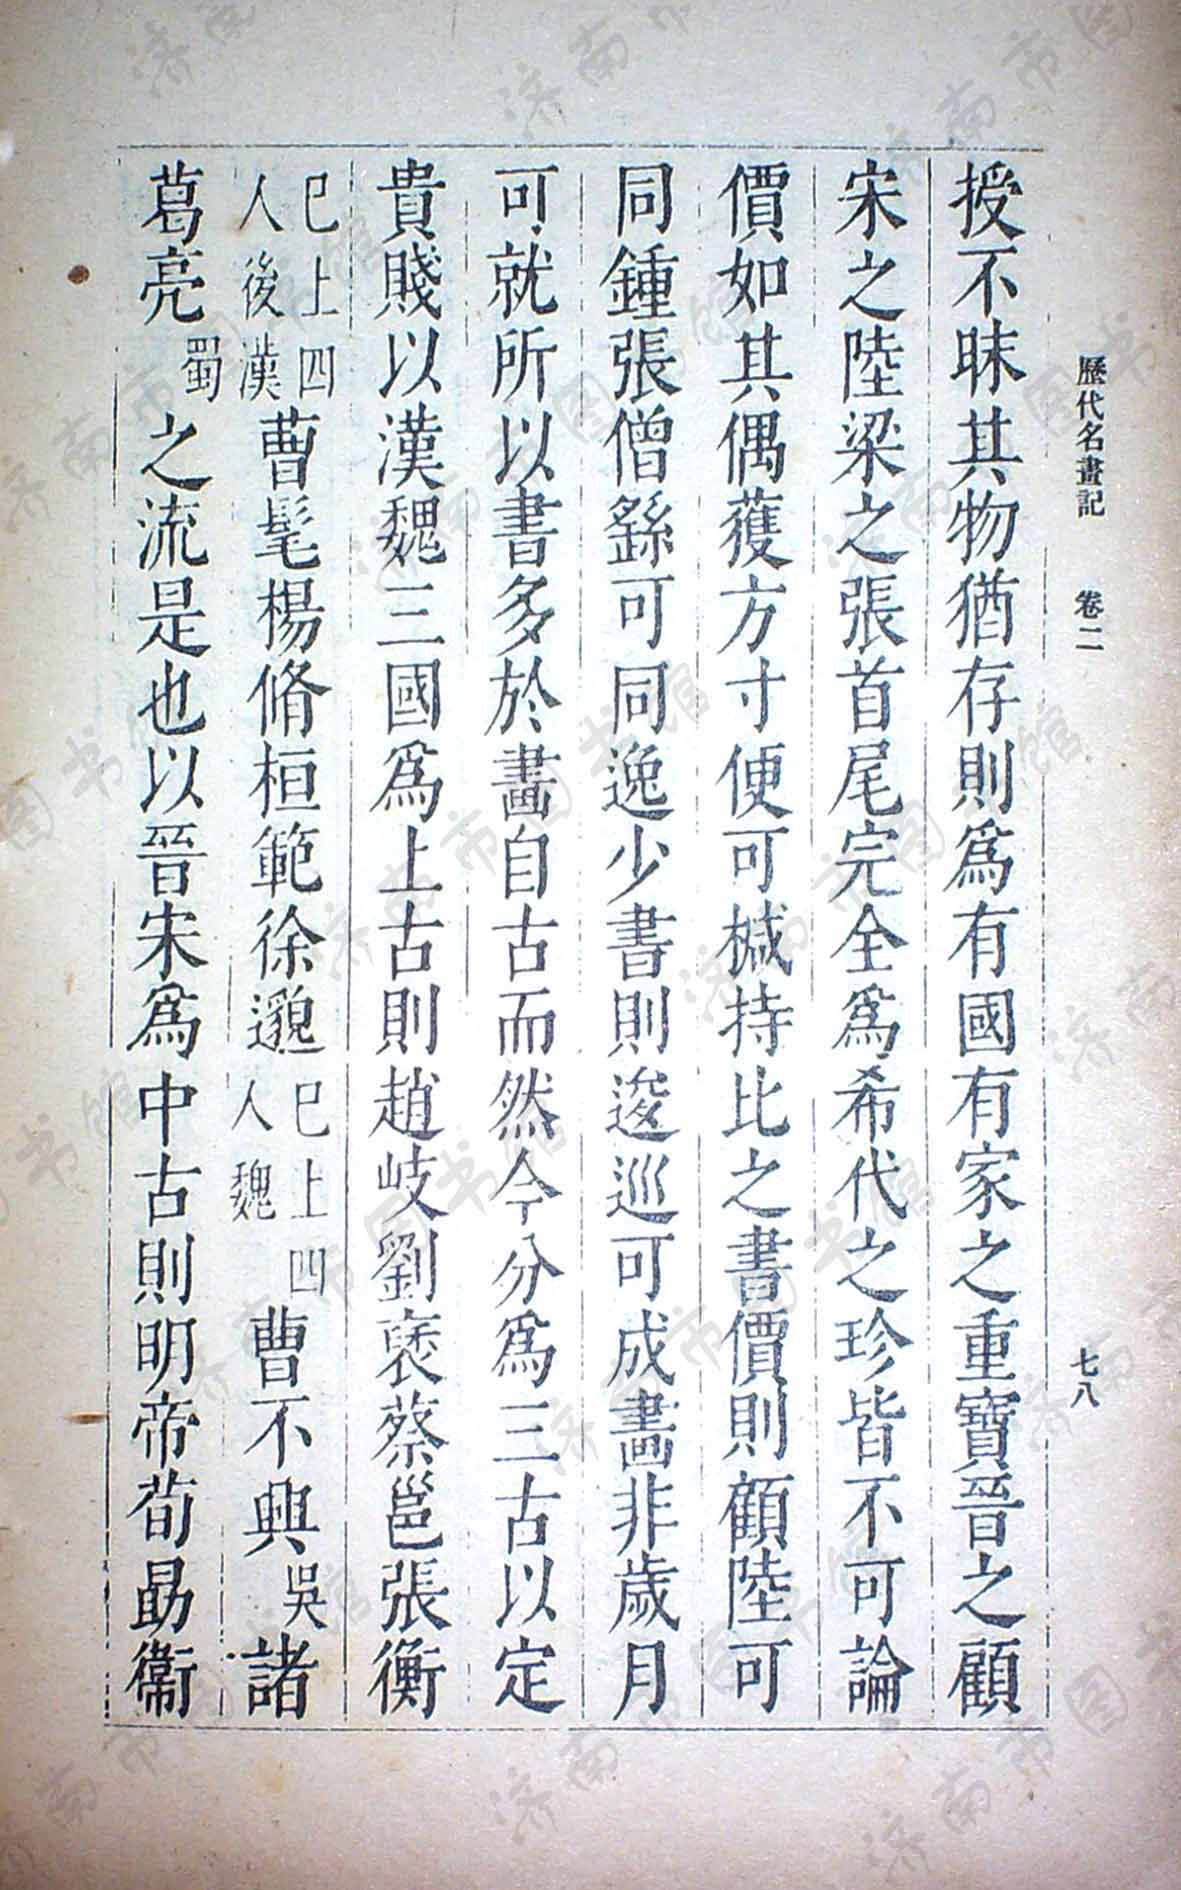 歷代名畫記　卷二　七八
授不昧其物猶存則爲有國有家之重寶晉之顧
宋之陸梁之張首尾完全爲希代之珍皆不可論
價如其偶獲方寸便可椷持比之書價則顧陸可
同鍾張僧繇可同逸少書則逡巡可成畫非歲月
可就所以書多於畫自古而然今分爲三古以定
貴賤以漢魏三國爲上古則趙岐劉褒蔡邕張衡
已上四人後漢曹髦楊脩桓範徐邈已上四人魏曹不興吳諸
葛亮蜀之流是也以晉宋爲中古則明帝荀勗衞
济南市图书馆